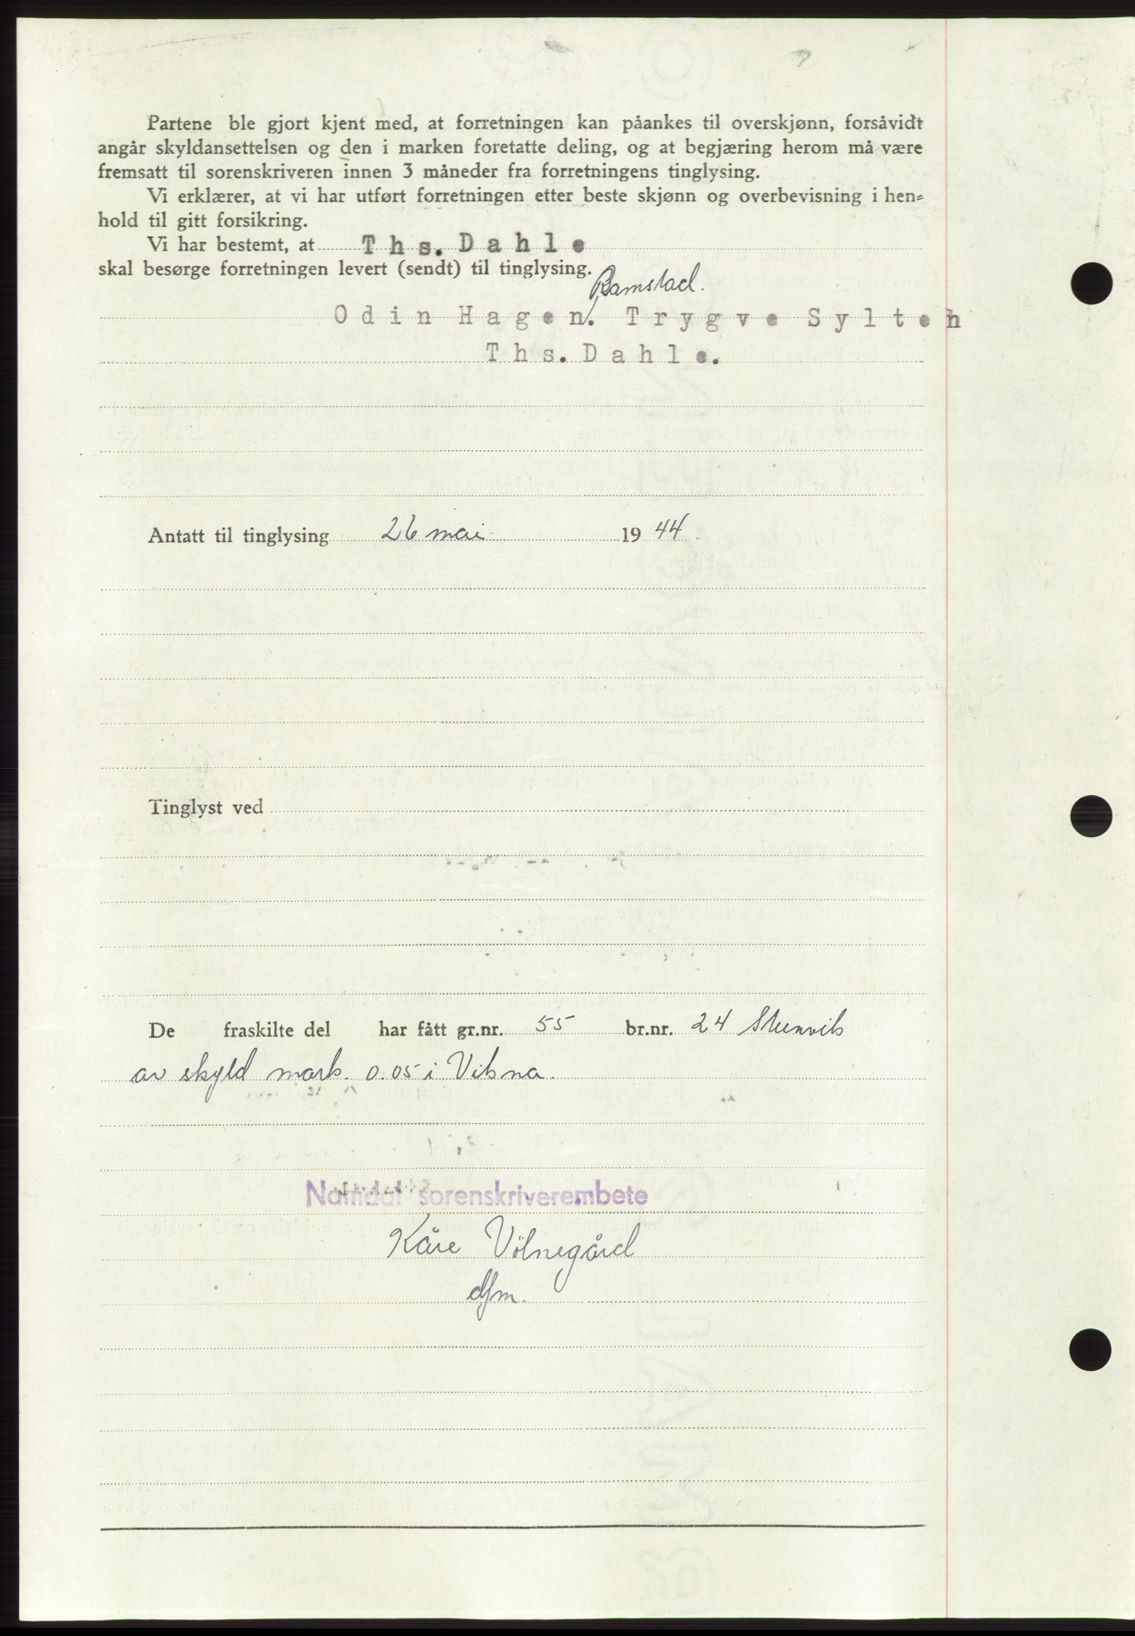 Partene ble gjort kjent med, at forretningen kan påankes til overskjønn, forsåvidt
angår skyldansettelsen og den i marken foretatte deling, og at begjæring herom må være
fremsatt til sorenskriveren innen 3 måneder fra forretningens tinglysing.
Vi erklærer, at vi har utført forretningen etter beste skjønn og overbevisning i hen-
hold til gitt forsikring.
Vi har bestemt, at Ths. Dahle
skal besørge forretningen levert (sendt) til tinglysing.
Ramstad.
Odin Hagen. Trygve Sylteh
Ths. Dahle.
Antatt til tinglysing 26 mai 1944
Tinglyst ved
De fraskilte del har fått gr.nr. 55 br.nr. 24 Steinvik
av skyld mark. 0.05 i Vikna.
Namdal sorenskriverembete
Kåre Völnegård
dfm.